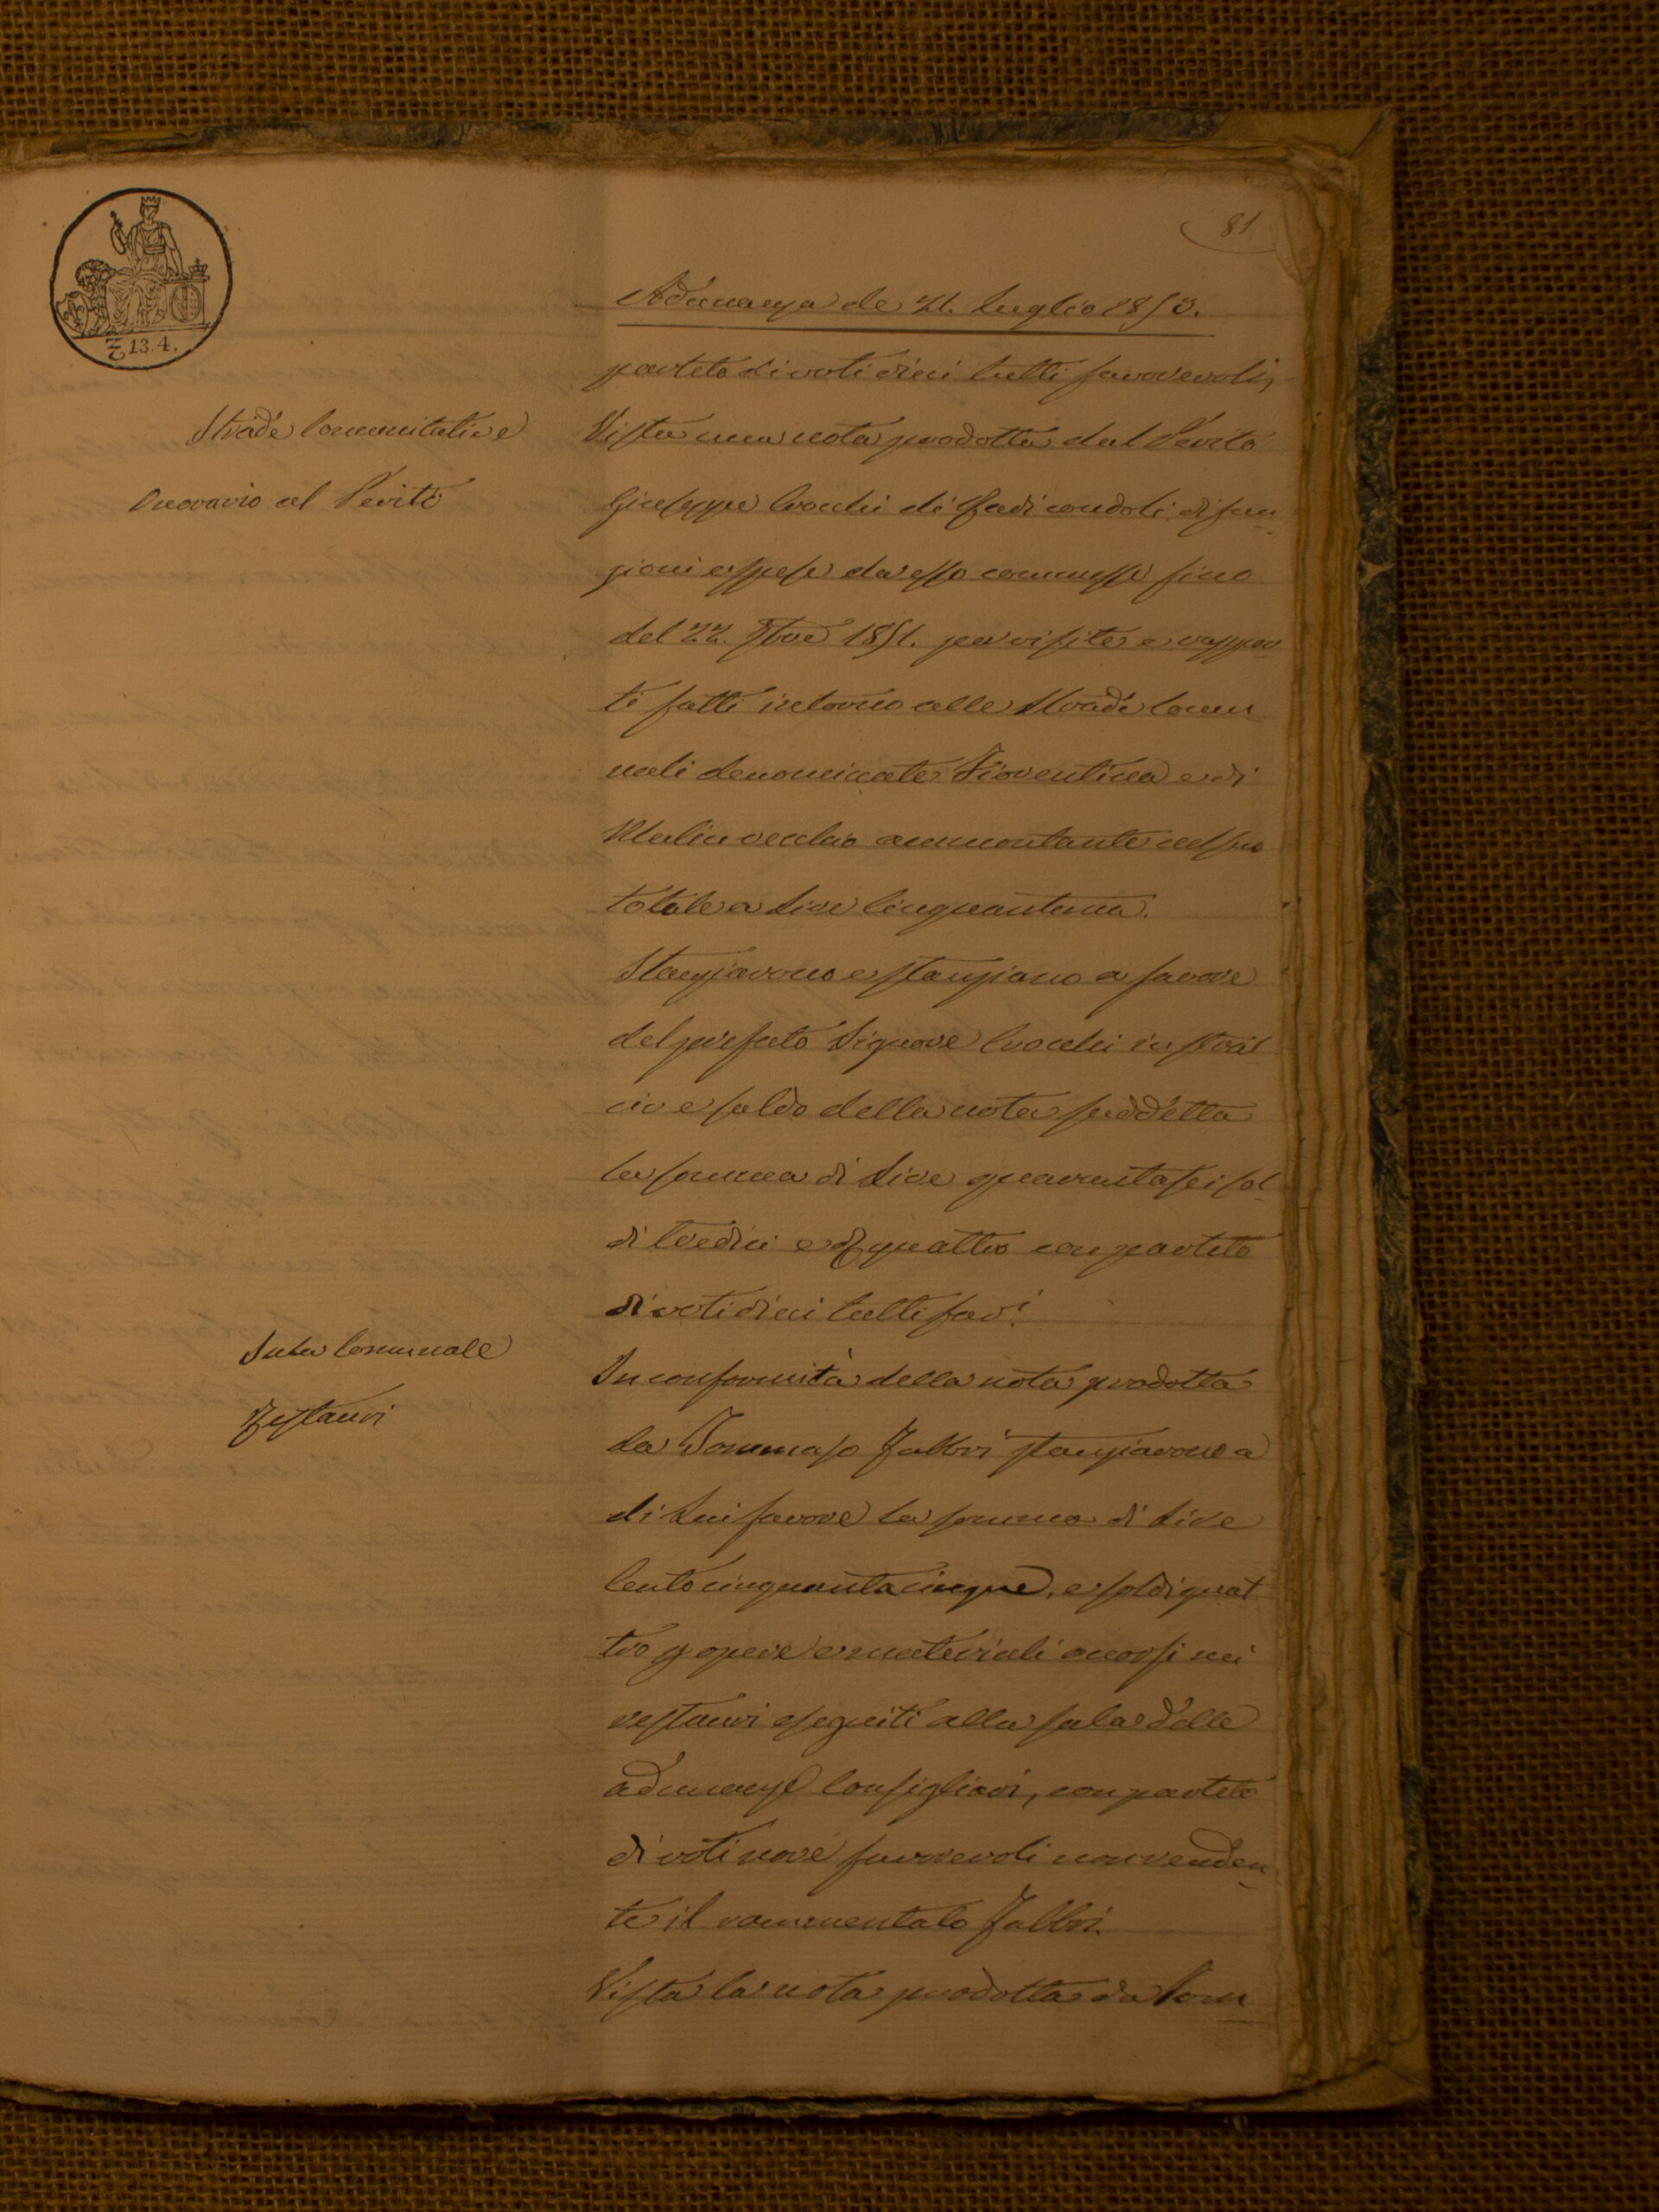 81
13.4.
Adunanza de 21. Luglio 1853.
partito di voti dieci tutti favorevoli,
Strade Comunitative
Onorario al Perito
Vista una nota prodotta dal Perito
Giuseppe Crocchi di Radicondoli di fun
zioni e spese da esso commesse fino
del 22. 9bre 1851. per visite e rappor
ti fatti intorno alle strade Comu
nali denominate Fiorentina e di
Mulin vecchio ammontante nel suo
totale a Lire Cinquantuna.
Stanziarono e stanziano a favore
del prefato Signore Crocchi in stral
cio e saldo della nota suddetta
la somma di Lire quarantasei sol
di tredici e d quattro con partito
di voti dieci tutti fav:i
Sala Comunale
Restauri
In conformità della nota prodotta
da Tommaso Fabbri stanziarono a
di Lui favore la somma di Lire
Centocinquantacinque, e soldi quat
tro p opere e materiali occorsi nei
restauri eseguiti alla sala delle
adunanze Consigliari, con partito
di voti nove favorevoli non renden
te il rammentato Fabbri.
Vista la nota prodotta da Tom